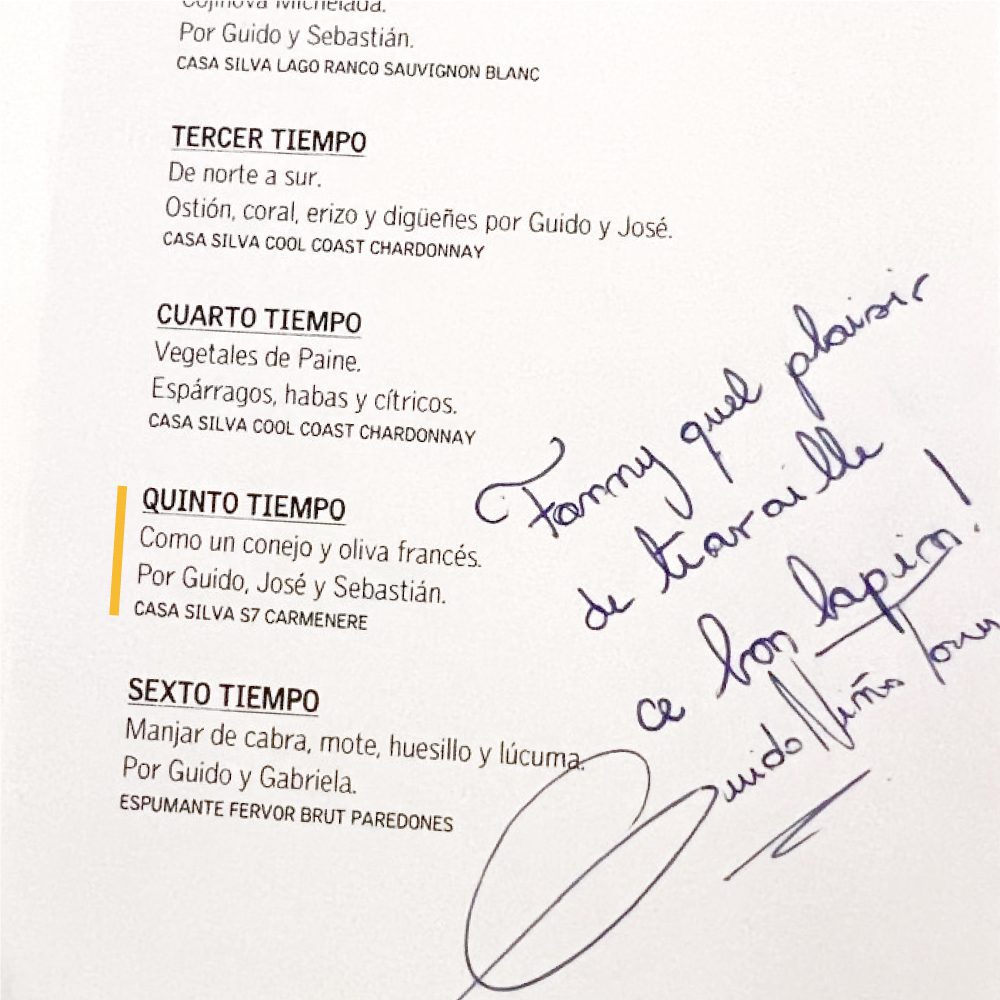 Cojinova Michelada.
Por Guido y Sebastián.
CASA SILVA LAGO RANCO SAUVIGNON BLANC
TERCER TIEMPO
De norte a sur.
Ostión, coral, erizo y digüeñes por Guido y José.
CASA SILVA COOL COAST CHARDONNAY
CUARTO TIEMPO
Vegetales de Paine.
Espárragos, habas y cítricos.
CASA SILVA COOL COAST CHARDONNAY
QUINTO TIEMPO
Como un conejo y oliva francés.
Por Guido, José y Sebastián.
CASA SILVA S7 CARMENERE
SEXTO TIEMPO
Manjar de cabra, mote, huesillo y lúcuma.
Por Guido y Gabriela.
ESPUMANTE FERVOR BRUT PAREDONES
quel plaisir
de travaille
ce bon lapin!
Guido Niño